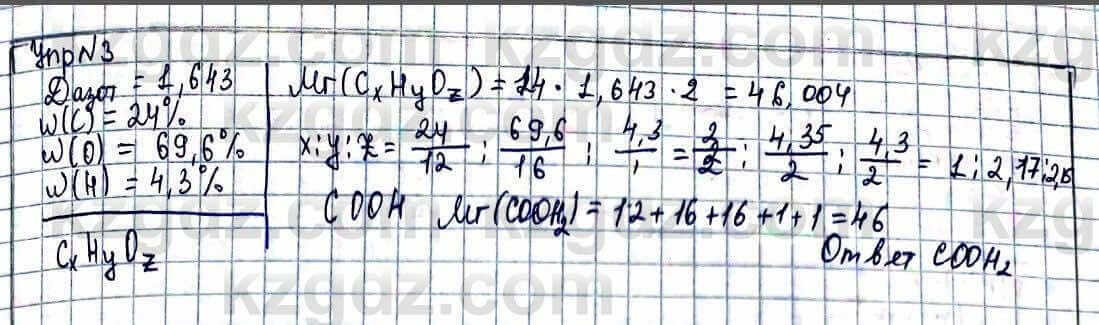 Упр N3
Dазот = 1,643
w(C) = 24%
w(O) = 69,6%
w(H) = 4,3%
CxHyOz
Mr(CxHyOz) = 14 · 1,643 · 2 = 46,004
x:y:z = 24/12 : 69,6/16 : 4,3/1 = 2/2 : 4,35/2 : 4,3/2 = 1:2,17:2,15
COOH Mr(COOH2) = 12+16+16+1+1=46
Ответ COOH2
kzgdz.com